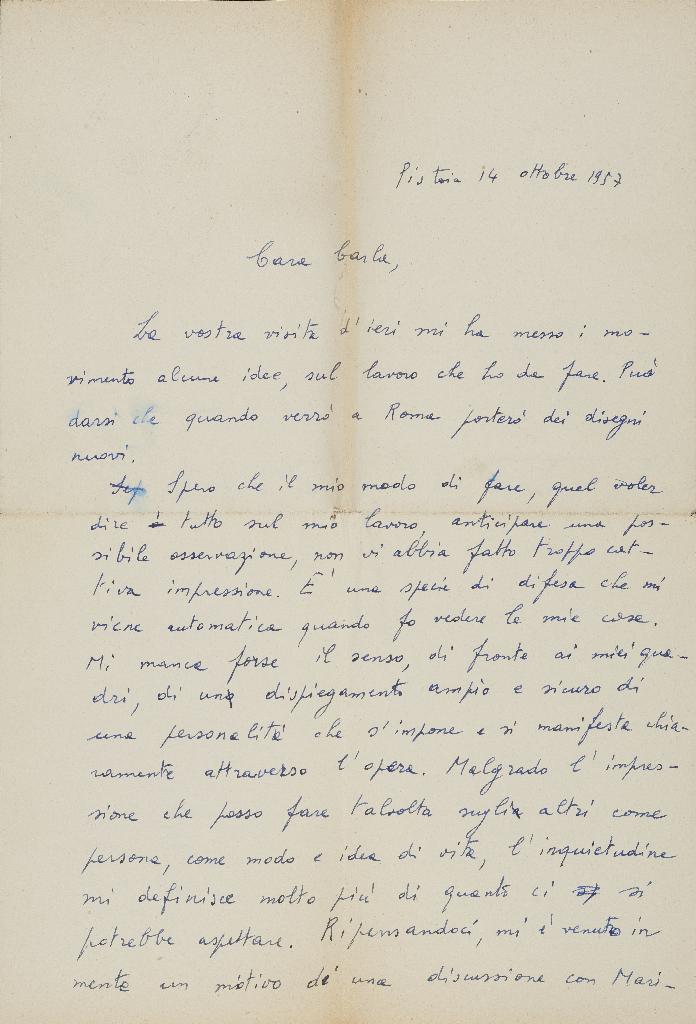 Pistoia 14 ottobre 1957
Cara Carla,
La vostra visita d'ieri mi ha messo i mo-
vimento alcune idee, sul lavoro che ho da fare. Può
darsi che quando verró a Roma porteró dei disegni
nuovi.
Spero che il mio modo di fare, quel voler
dire tutto sul mio lavoro, anticipare una pos-
sibile osservazione, non vi abbia fatto troppo cat-
tiva impressione. E' una specie di difesa che mi
viene automatica quando fo vedere le mie cose.
Mi manca forse il senso, di fronte ai miei qua-
dri, di una dispiegamento ampio e sicuro di
una personalità che s'impone e si manifesta chia-
ramente attraverso l'opera. Malgrado l'impres-
sione che posso fare talvolta suglia altri come
persona, come modo e idea di vita, l'inquietudine
mi definisce molto più di quanto ci si
potrebbe aspettare. Ripensandoci, mi è venuto in
mente un motivo di una discussione con Mari-